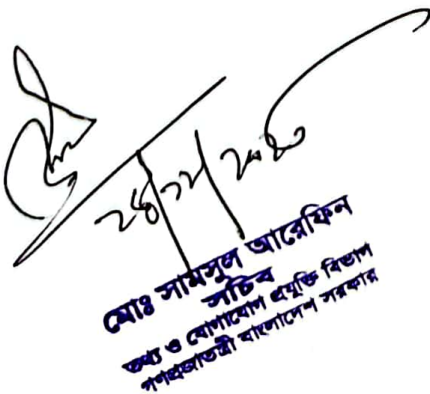 মোঃ সামসুল আরেফিন
সচিব
তথ্য ও যোগাযোগ প্রযুক্তি বিভাগ
গণপ্রজাতন্ত্রী বাংলাদেশ সরকার